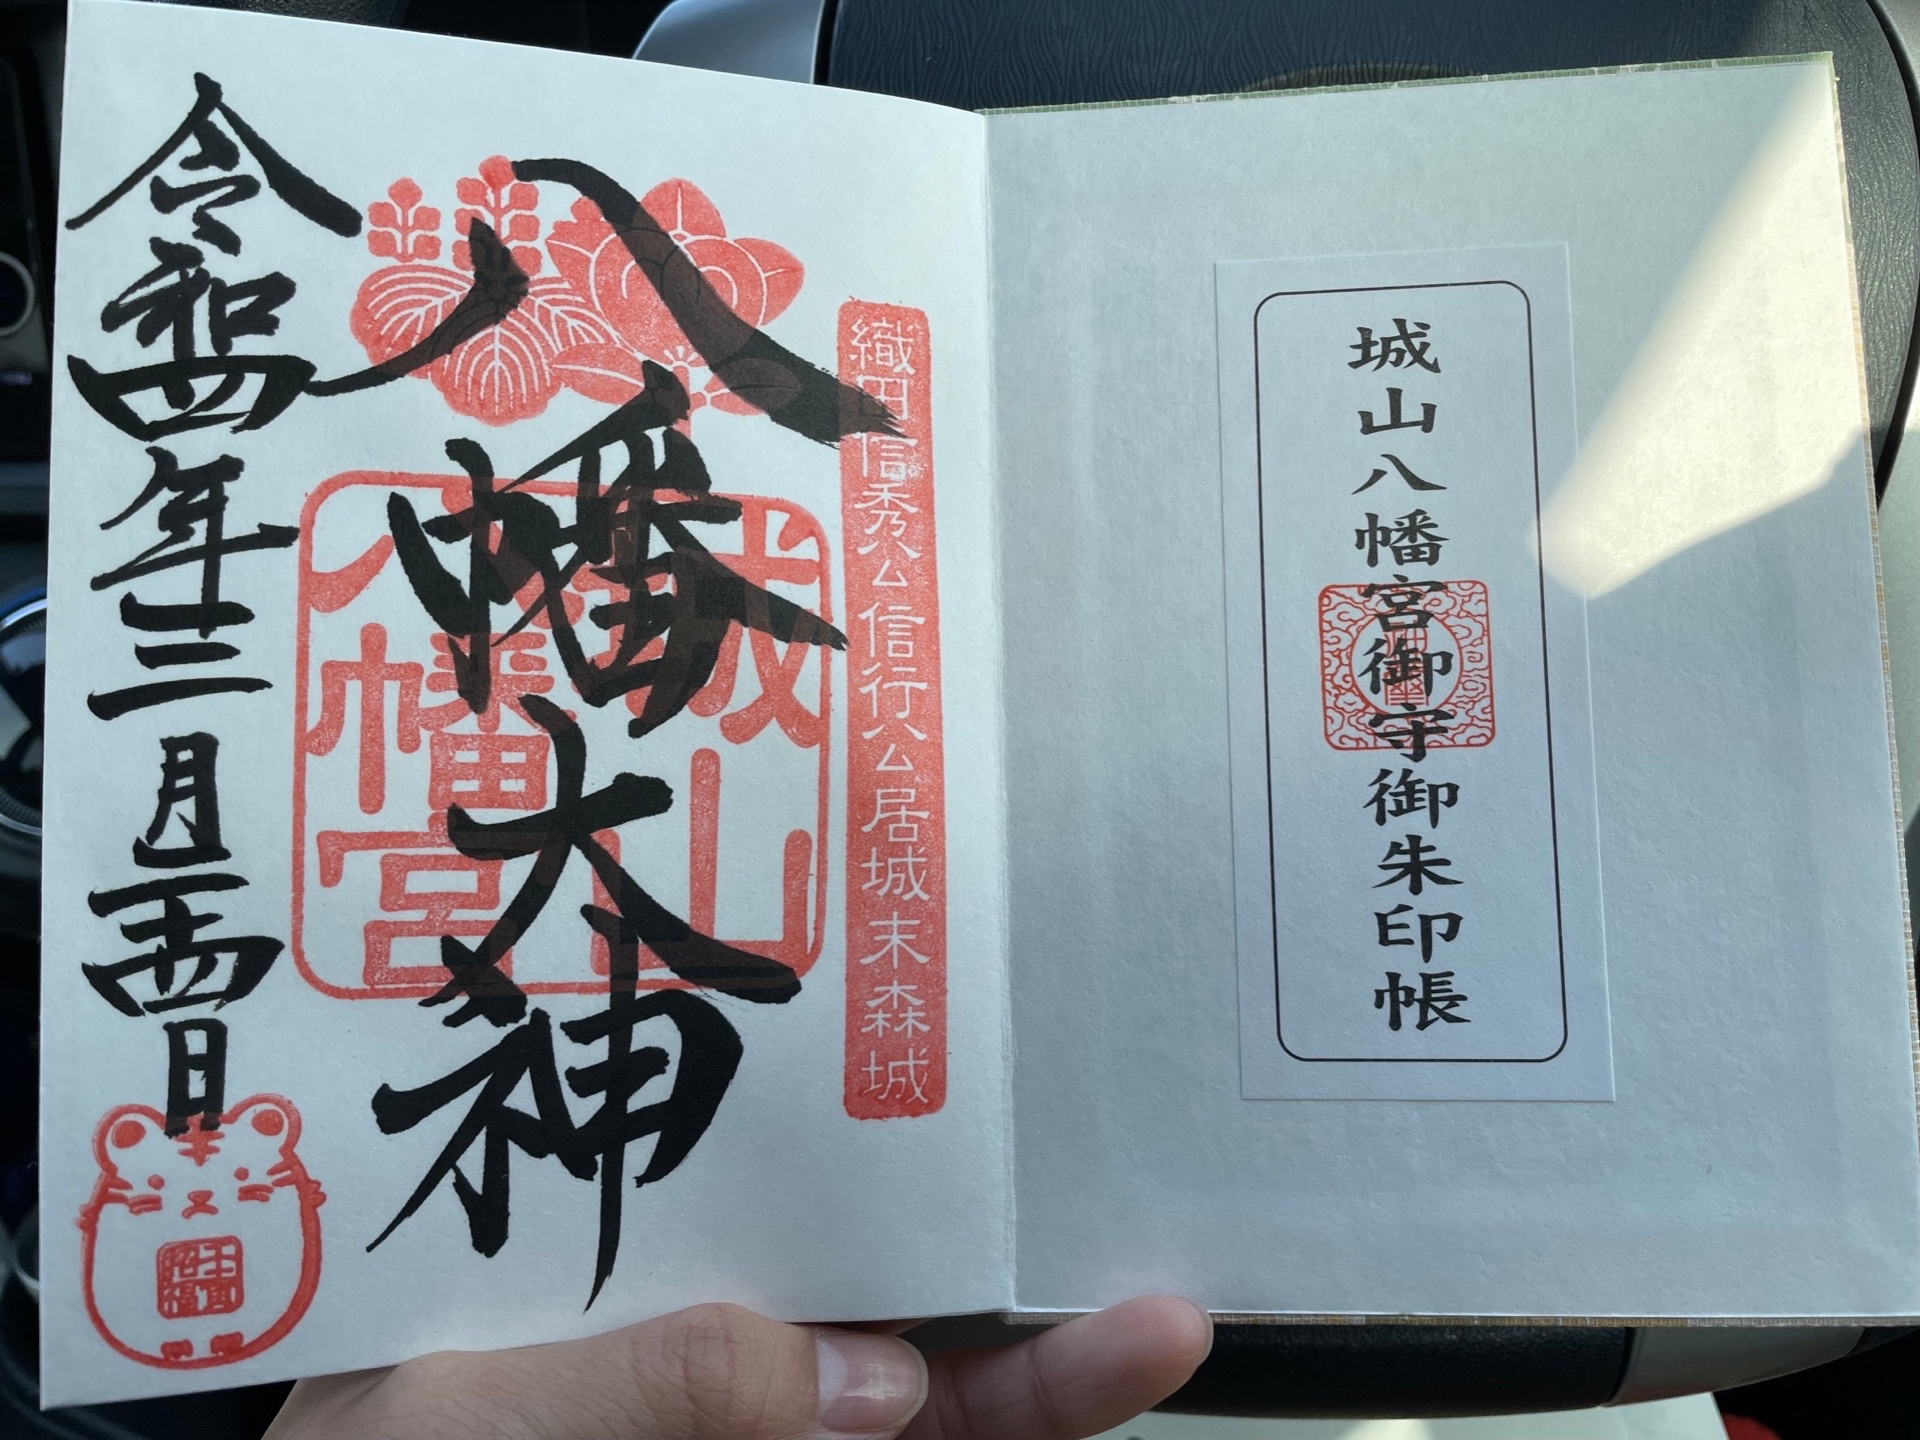 城山八幡宮御守御朱印帳
織田信秀公信行公居城末森城
八幡大神
城山
八幡宮
令和四年三月二十四日
壬寅
招福